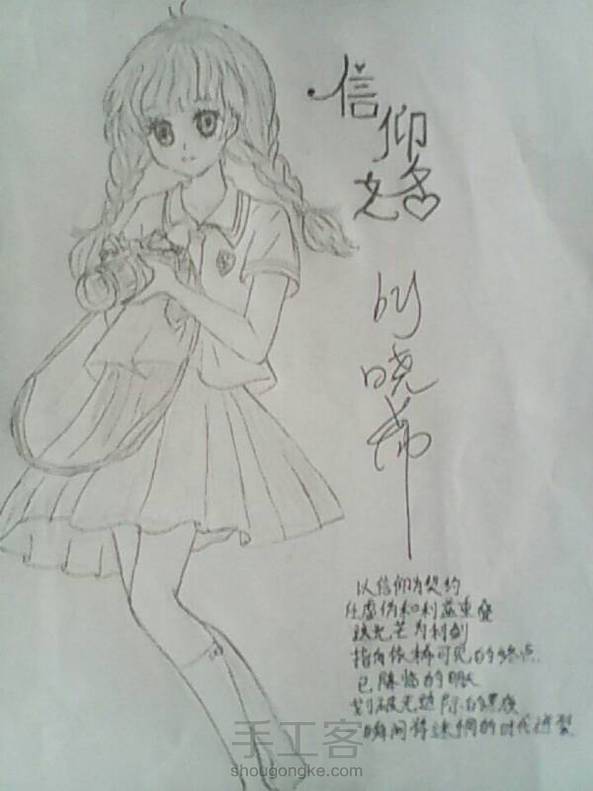 信仰
之名
by
晓希
以信仰为契约
任虚伪和利益重叠
光芒为利剑
指向依稀可见的终点
已降临的
划破无边际的黑夜
瞬间将迷惘的时代迸裂
手工客
shougongke.com